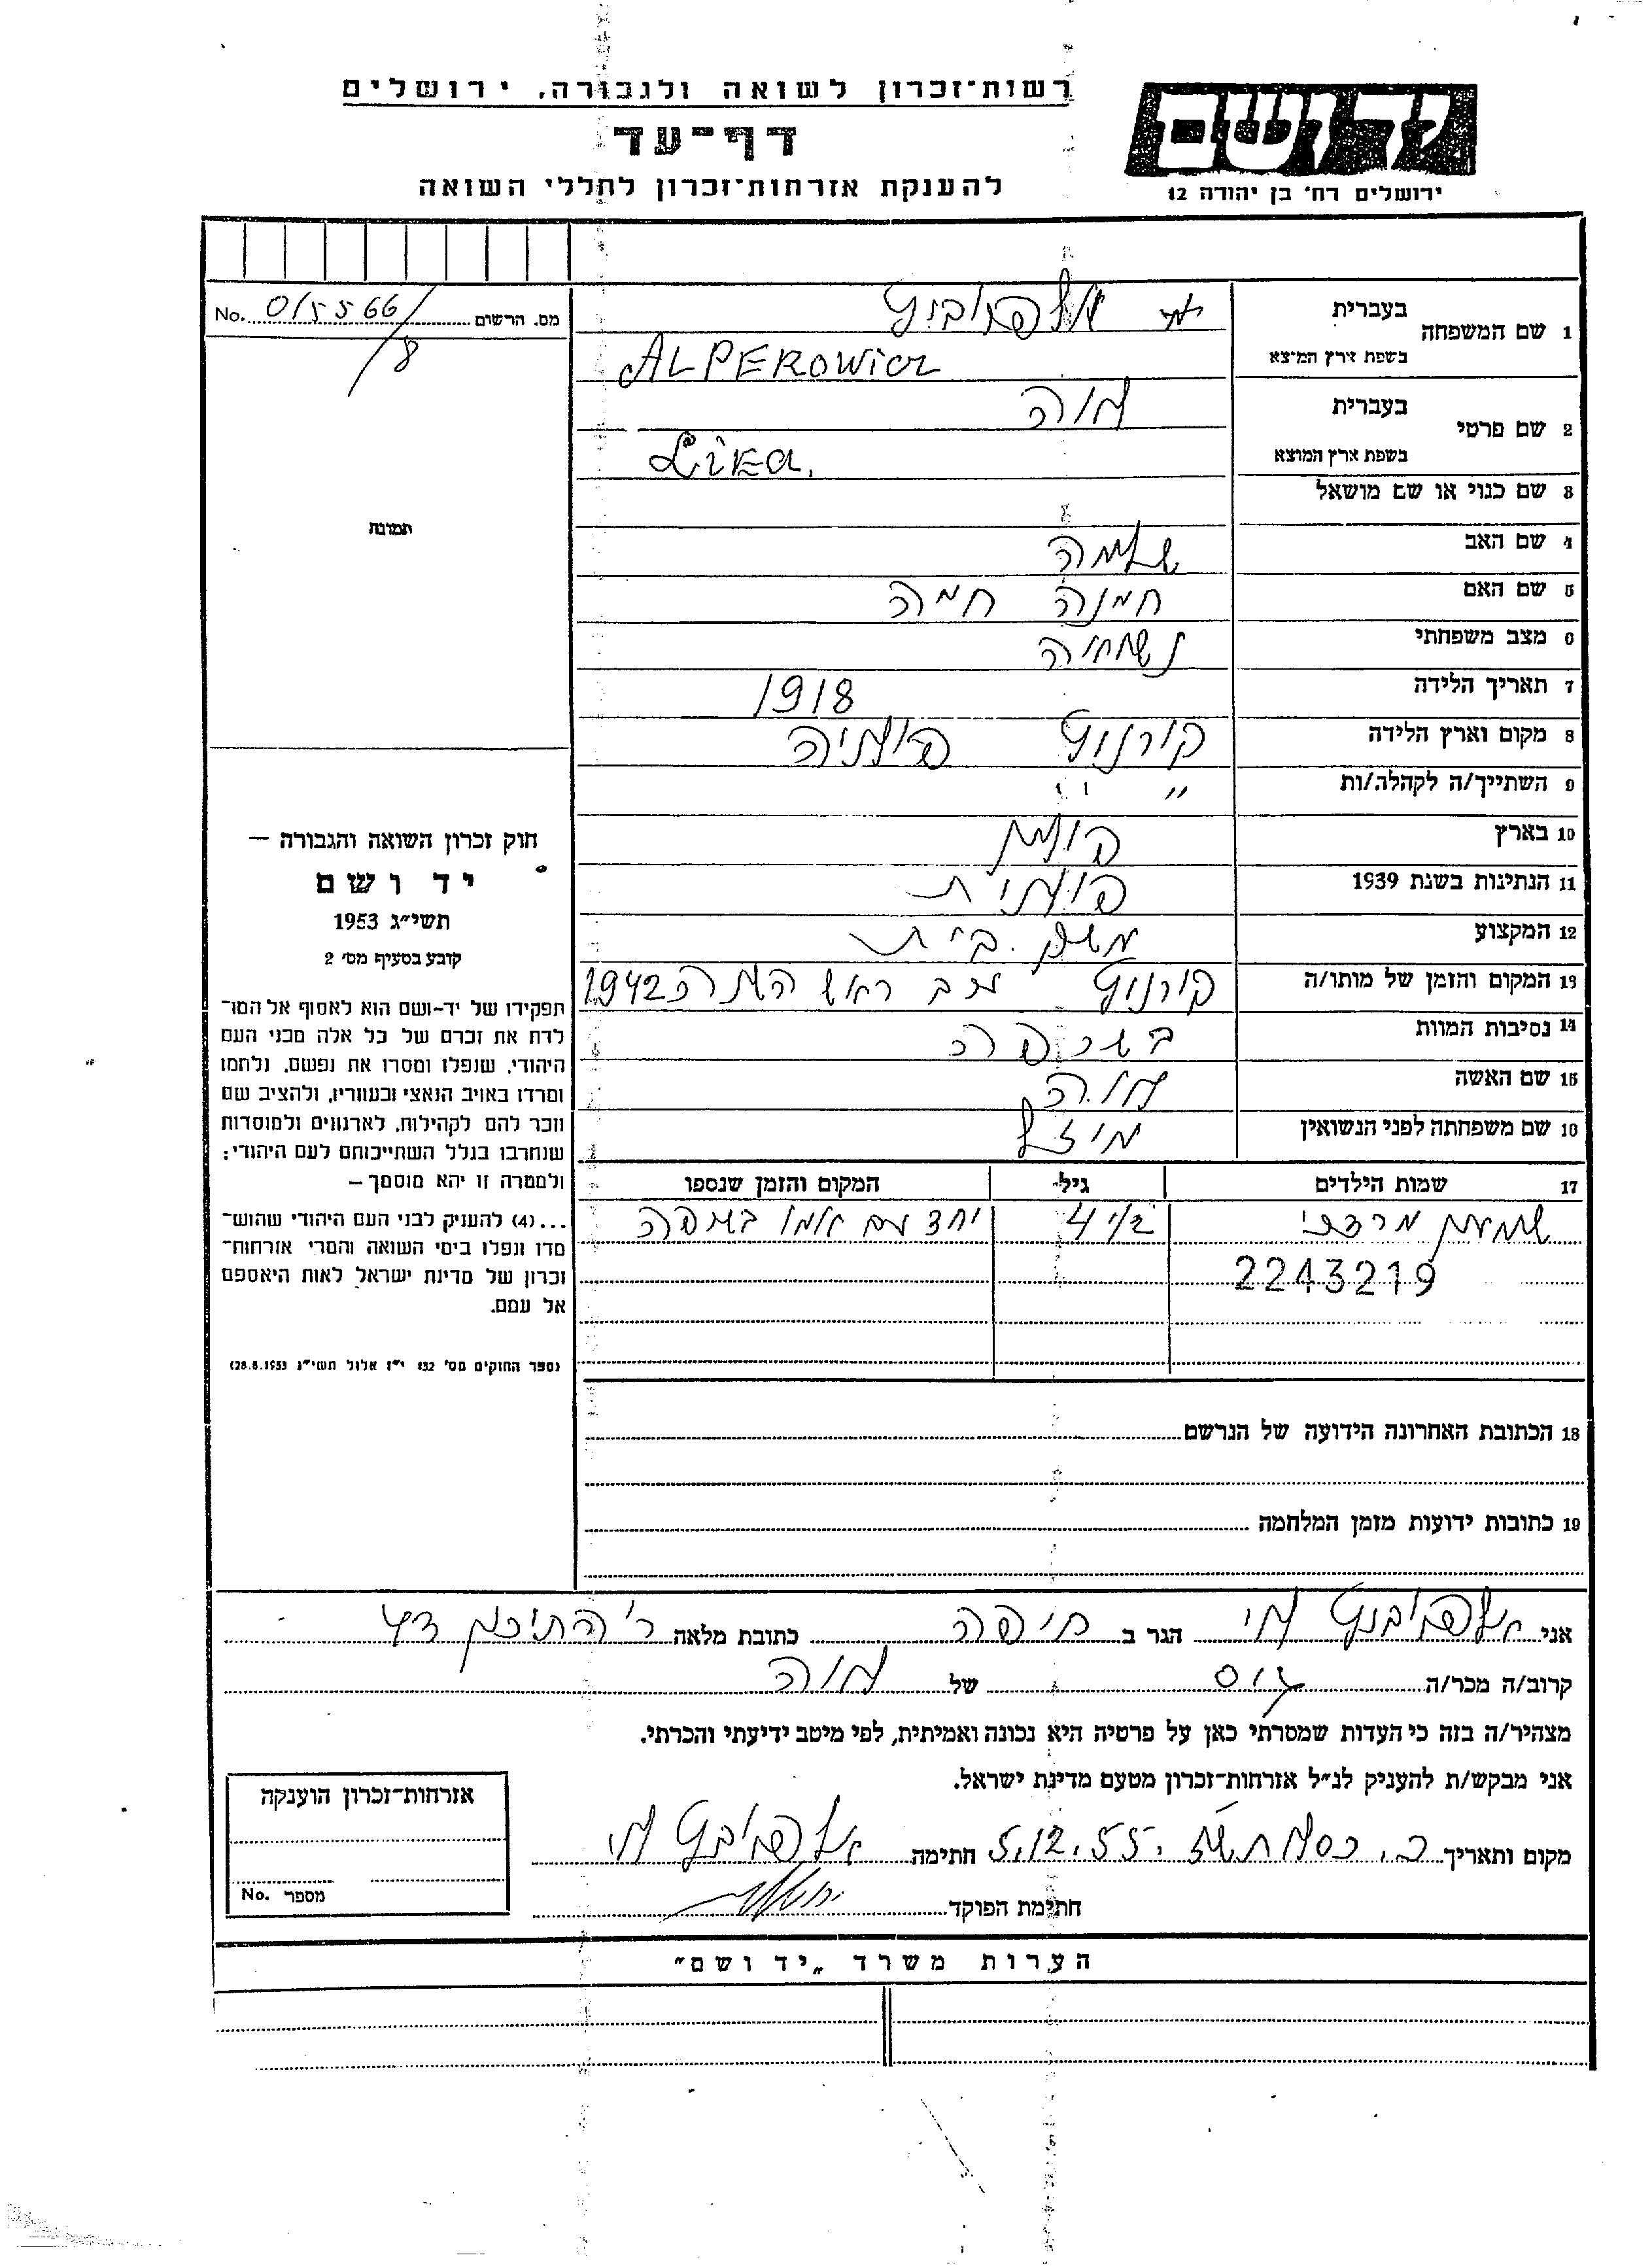 רשות־זכרון לשואה ולגבורה, ירושלים
דף־עד
להענקת אזרחות־זכרון לחללי השואה
יד ושם
ירושלים רח׳ בן יהודה 12
מס. הרשום No. 015566/8
תמונה
חוק זכרון השואה והגבורה —
יד ושם
תשי״ג 1953
קובע בסעיף מס׳ 2
תפקידו של יד-ושם הוא לאסוף אל המו־
לדת את זכרם של כל אלה מבני העם
היהודי, שנפלו ומסרו את נפשם, נלחמו
ומרדו באויב הנאצי ובעוזריו, ולהציב שם
וזכר להם לקהילות, לארגונים ולמוסדות
שנחרבו בגלל השתייכותם לעם היהודי;
ולמטרה זו יהא מוסמך—
...(4) להעניק לבני העם היהודי שהוש־
מדו ונפלו בימי השואה והמרי אזרחות־
זכרון של מדינת ישראל לאות היאספם
אל עמם.
(ספר החוקים מס׳ 132 י״ז אלול תשי״ג 28.8.1953)
1 שם המשפחה בעברית אלפרוביץ
בשפת ארץ המוצא ALPEROWICZ
2 שם פרטי בעברית
בשפת ארץ המוצא
3 שם כנוי או שם מושאל
4 שם האב שלמה
5 שם האם
6 מצב משפחתי נשואה
7 תאריך הלידה 1918
8 מקום וארץ הלידה קורניץ פולניה
9 השתייך/ה לקהלה/ות " "
10 בארץ פולין
11 הנתינות בשנת 1939 פולנית
12 המקצוע משק בית
13 המקום והזמן של מותו/ה קורניץ ערב ראש השנה 1942
14 נסיבות המוות בשרפה
15 שם האשה
16 שם משפחתה לפני הנשואין
17 שמות הילדים גיל המקום והזמן שנספו
שמעון מרדכי 4 1/2 יחד עם אמו בשרפה
2243219
18 הכתובת האחרונה הידועה של הנרשם
19 כתובות ידועות מזמן המלחמה
אני אלפרוביץ הגר ב חיפה כתובת מלאה
קרוב/ה מכר/ה גיס של
מצהיר/ה בזה כי העדות שמסרתי כאן על פרטיה היא נכונה ואמיתית, לפי מיטב ידיעתי והכרתי.
אני מבקש/ת להעניק לנ״ל אזרחות־זכרון מטעם מדינת ישראל.
מקום ותאריך כ. כסלו תשט״ז 5.12.55 חתימה אלפרוביץ
חתימת הפוקד
אזרחות־זכרון הוענקה
מספר No.
הערות משרד „יד ושם״